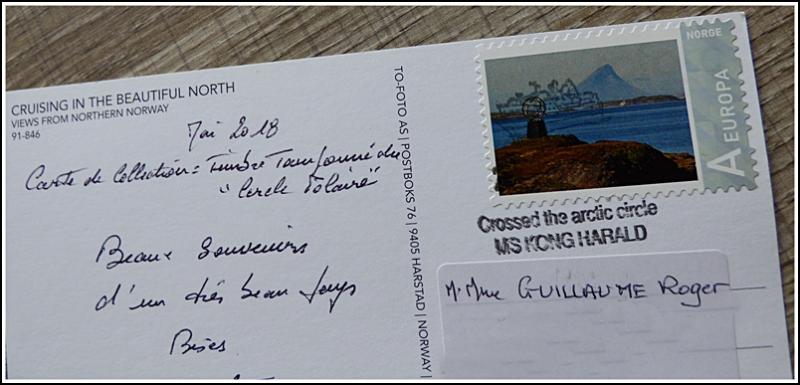 CRUISING IN THE BEAUTIFUL NORTH
VIEWS FROM NORTHERN NORWAY
91-846
Mai 2018
Carte de Collection = Timbre Tamponné du
"Cercle Polaire"
Beaux Souvenirs
d'un très beau pays
Bises
TO-FOTO AS | POSTBOKS 76 | 9405 HARSTAD | NORWAY |
NORGE
A EUROPA
Crossed the arctic circle
MS KONG HARALD
M. Mme GUILLAUME Roger